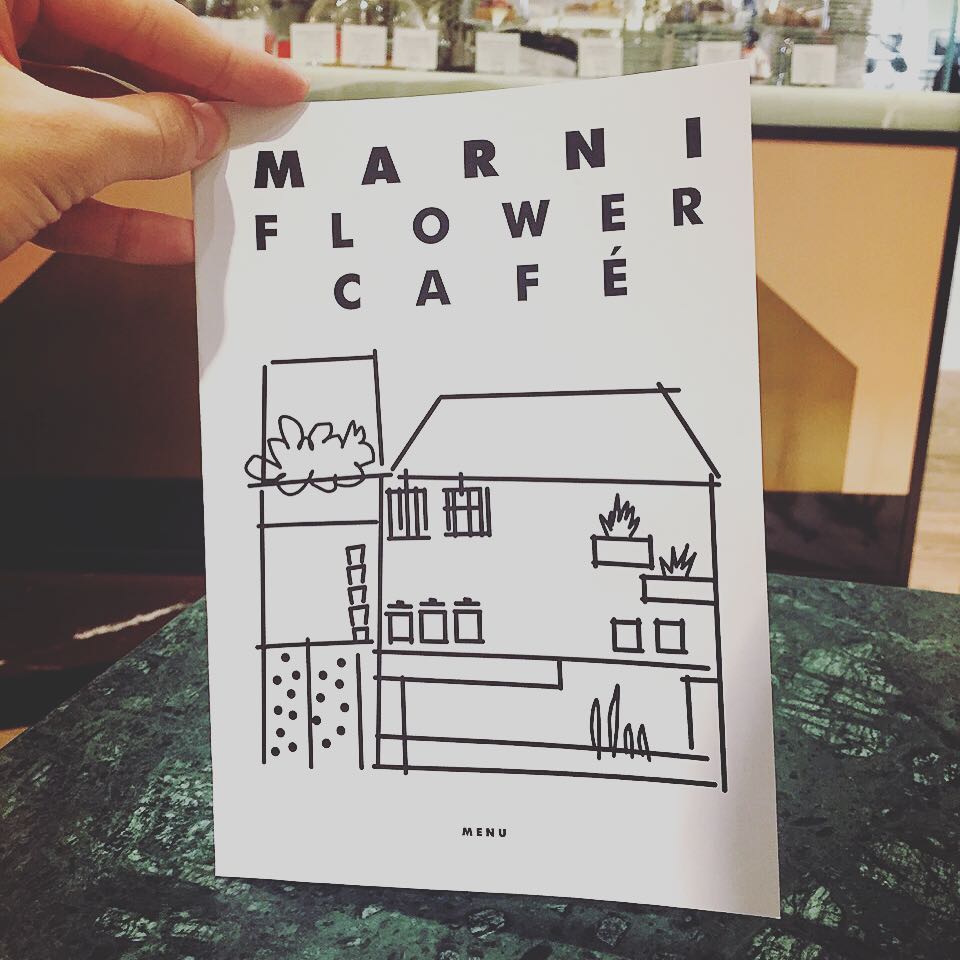 MARNI
FLOWER
CAFÉ
MENU